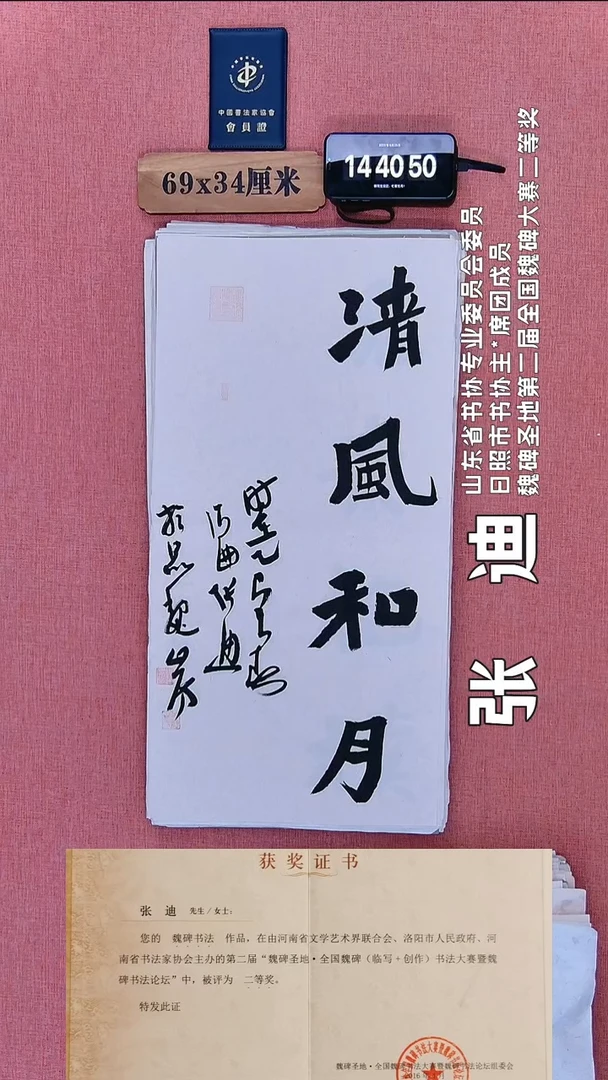 中國書法家協會
會員證
69x34厘米
14 40 50
清風和月
山东省书协专业委员会委员
日照市书协主*席团成员
魏碑圣地第二届全国魏碑大赛二等奖
张 迪
获奖证书
张 迪 先生/女士：
您的 魏碑书法 作品，在由河南省文学艺术界联合会、洛阳市人民政府、河
南省书法家协会主办的第二届“魏碑圣地·全国魏碑（临写+创作）书法大赛暨魏
碑书法论坛”中，被评为 二等奖。
特发此证
魏碑圣地·全国魏碑书法大赛暨魏碑书法论坛组委会